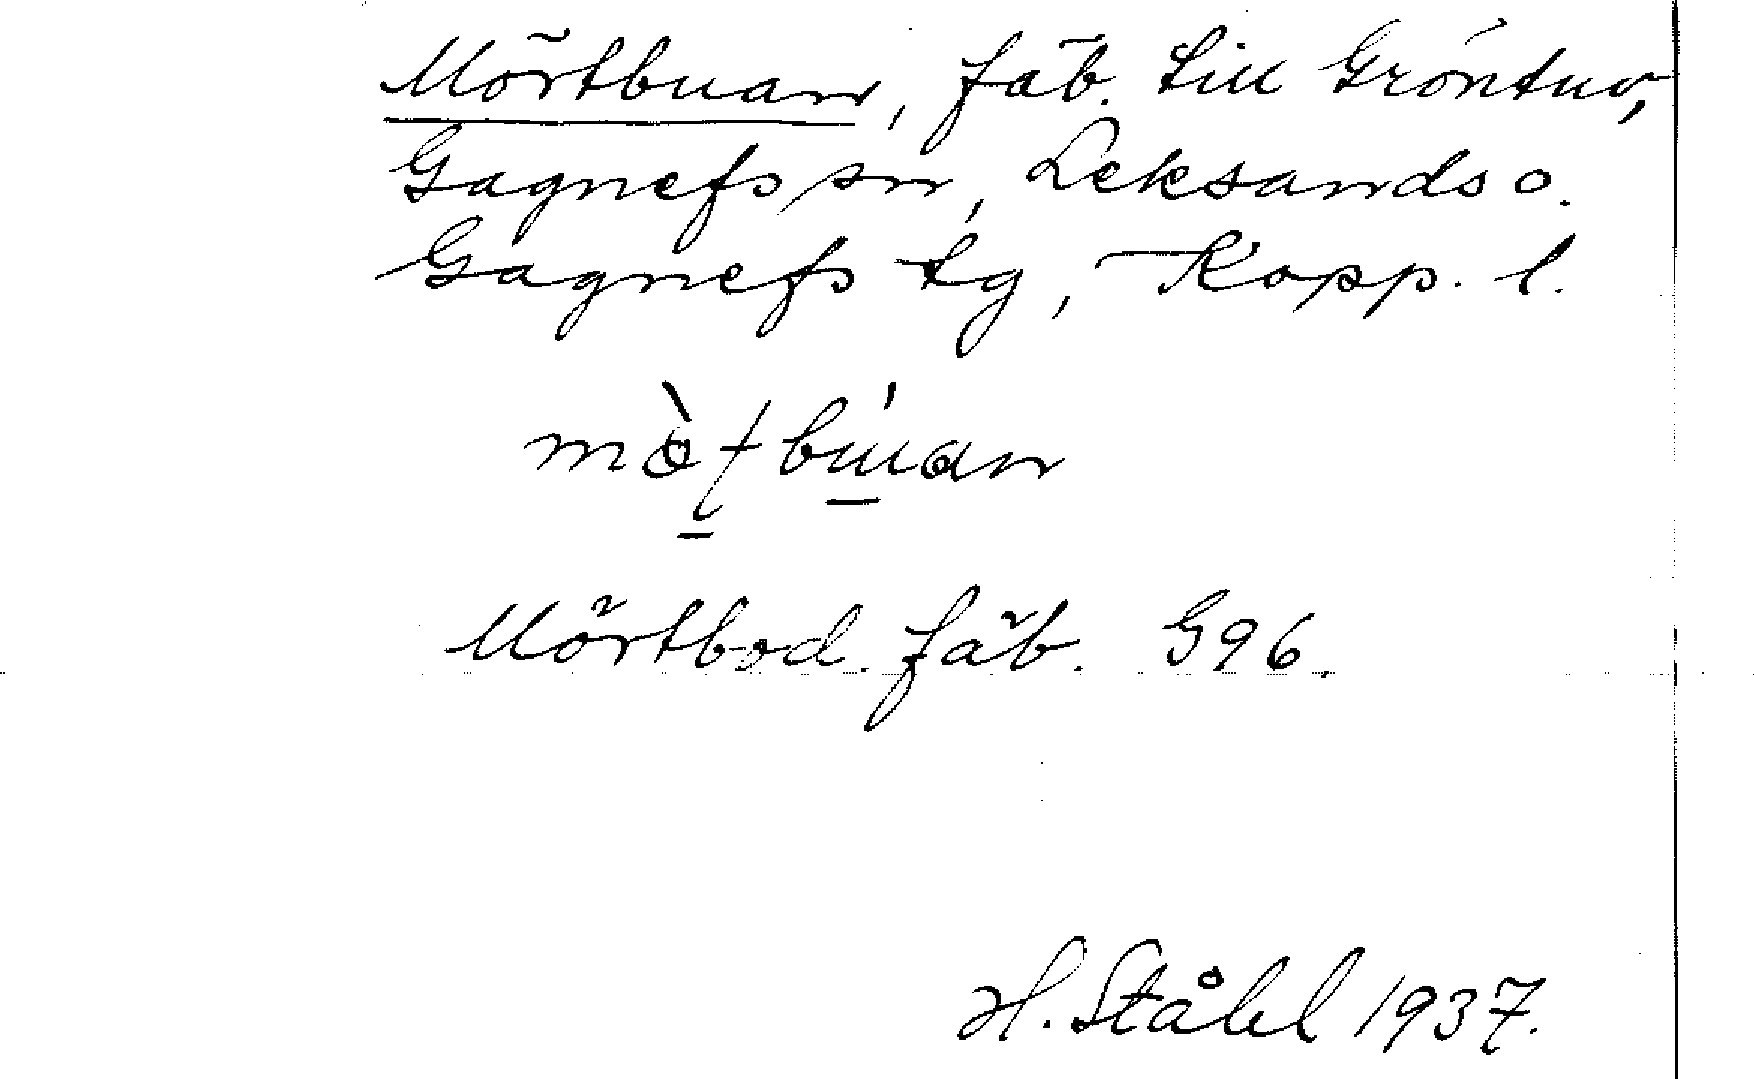 Mörtbuan, fäb. till Gröntuv,
Gagnefs sn, Leksands o.
Gagnefs tg, Kopp. l.
Mörtbod. fäb. G96.
H. Ståhl 1937.